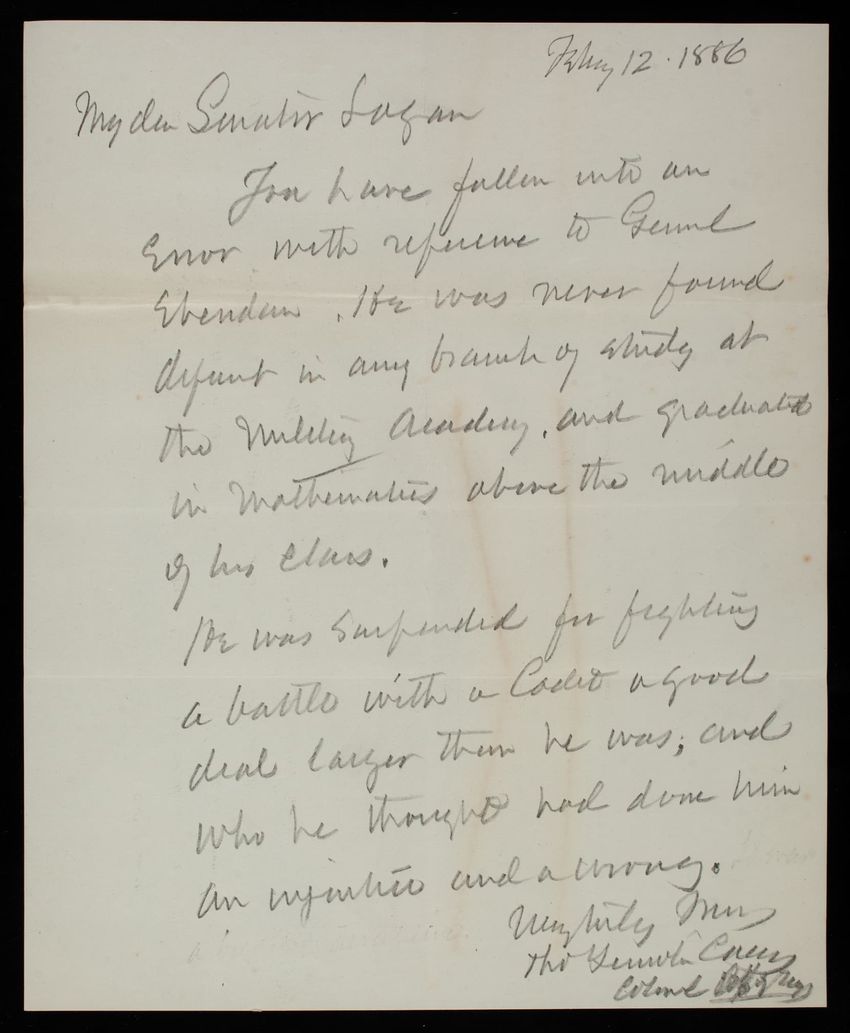 Feby 12. 1886
My dear Senator Logan
You have fallen into an
Error with reference to Genrl
Sheridan. He was never found
deficient in any branch of study at
the Military Academy, and graduated
in Mathematics above the middle
of his Class.
He was Suspended for fighting
a battle with a Cadet a good
deal larger than he was; and
who he thought had done him
an injustice and a wrong.
Very truly Yours
Tho Lincoln Casey
Colonel